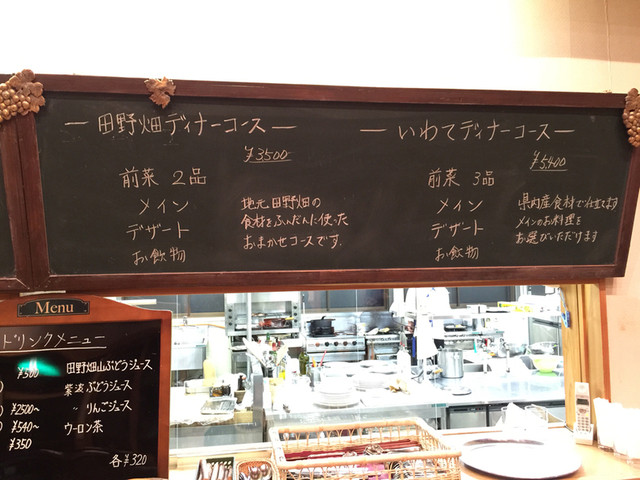 ― 田野畑ディナーコース ―
¥3500
前菜 2品
メイン
デザート
お飲物
地元田野畑の
食材をふんだんに使った
おまかせコースです.
― いわてディナーコース ―
¥5,400
前菜 3品
メイン
デザート
お飲物
県内産食材で仕立てます
メインのお料理を
お選びいただけます
Menu
ドリンクメニュー
¥500 田野畑山ぶどうジュース
紫波ぶどうジュース
¥2500~ 〃 りんごジュース
¥540~ ウーロン茶
¥350
各¥320